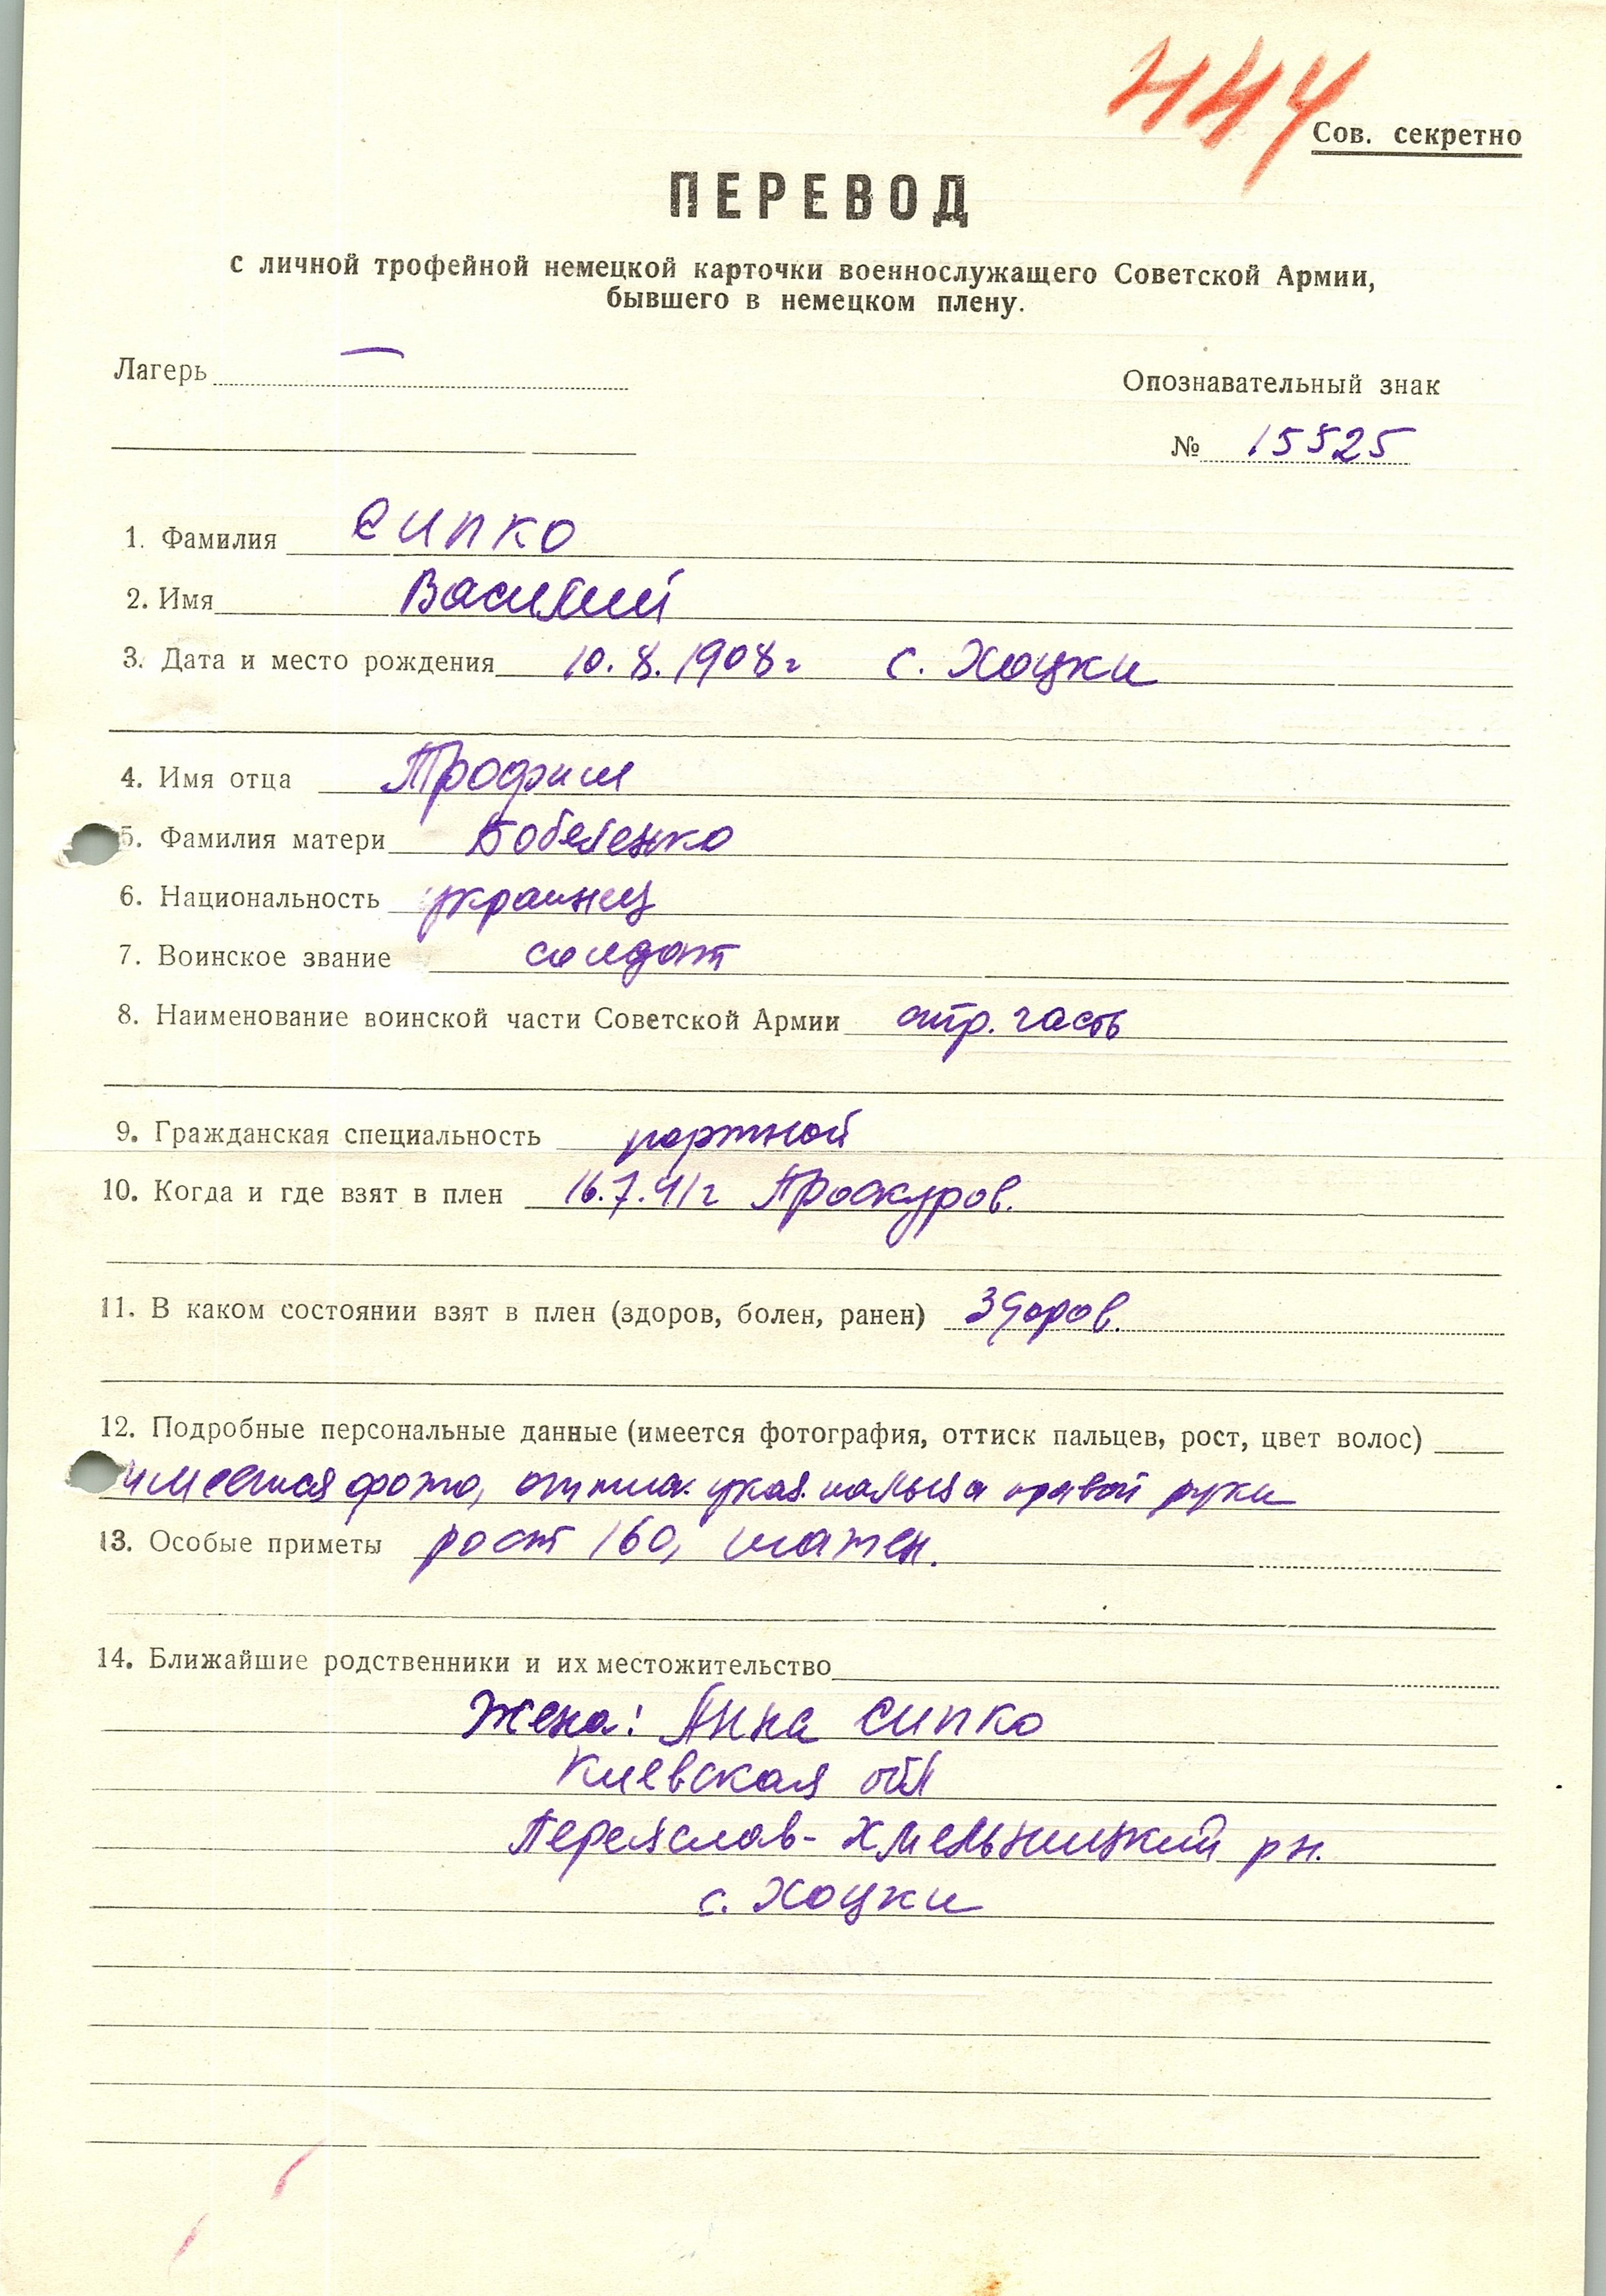 444
Сов. секретно
ПЕРЕВОД
с личной трофейной немецкой карточки военнослужащего Советской Армии,
бывшего в немецком плену.
Лагерь —
Опознавательный знак
№ 15525
1. Фамилия Сипко
2. Имя Василий
3. Дата и место рождения 10.8.1908 г с. Хоцки
4. Имя отца Трофим
5. Фамилия матери Бобеленко
6. Национальность украинец
7. Воинское звание солдат
8. Наименование воинской части Советской Армии стр. часть
9. Гражданская специальность портной
10. Когда и где взят в плен 16.7.41 г Проскуров.
11. В каком состоянии взят в плен (здоров, болен, ранен) Здоров.
12. Подробные персональные данные (имеется фотография, оттиск пальцев, рост, цвет волос)
имеется фото, оттиск указ. пальца правой руки
13. Особые приметы рост 160, шатен.
14. Ближайшие родственники и их местожительство
Жена: Анна Сипко
Киевская обл
Переяслав-Хмельницкий рн.
с. Хоцки